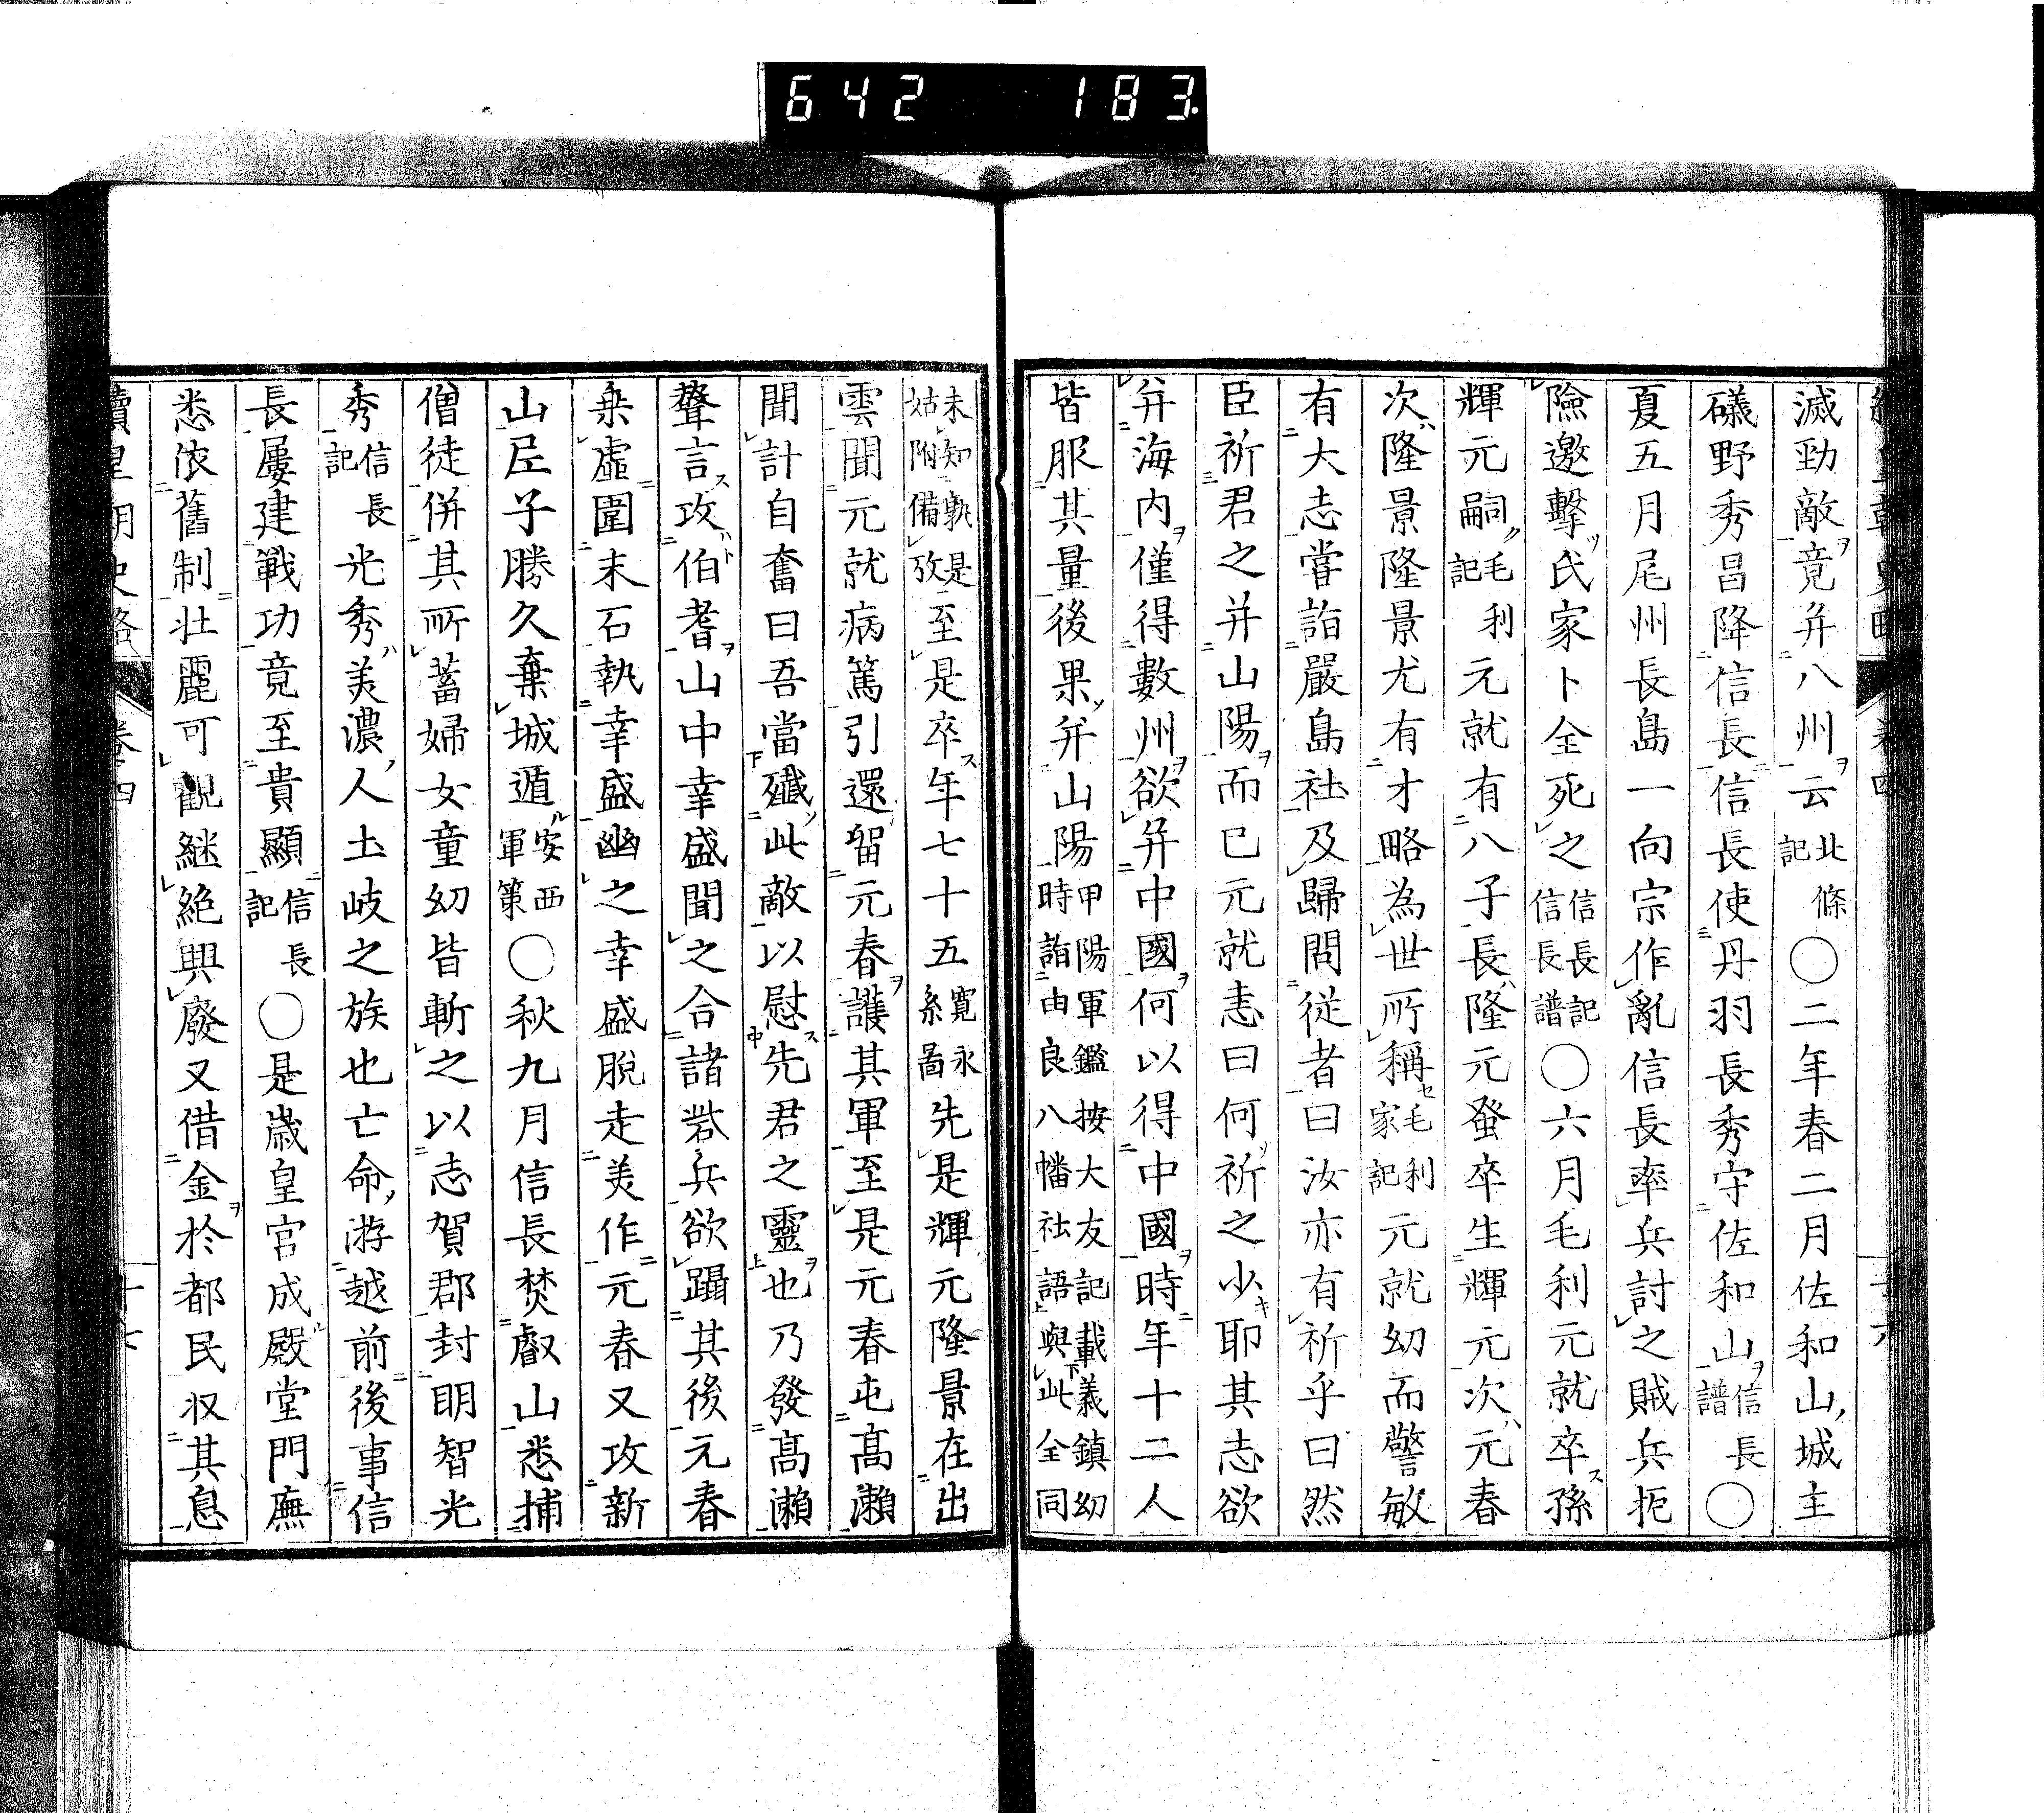 642 183.
滅勁敵竟并八州云北條記○二年春二月佐和山城主
礒野秀昌降信長信長使丹羽長秀守佐和山信長譜○
夏五月尾州長島一向宗作亂信長率兵討之賊兵扼
險邀擊氏家卜全死之信長記信長譜○六月毛利元就卒孫
輝元嗣毛利記元就有八子長隆元蚤卒生輝元次元春
次隆景隆景尤有才略為世所稱毛利家記元就幼而警敏
有大志嘗詣嚴島社及歸問従者曰汝亦有祈乎曰然
臣祈君之并山陽而已元就恚曰何祈之少耶其志欲
并海内僅得數州欲并中國何以得中國時年十二人
皆服其量後果并山陽甲陽軍鑑按大友記載義鎮幼時詣由良八幡社語與此全同
未知孰是姑附備攷至是卒年七十五寛永系圖先是輝元隆景在出
雲聞元就病篤引還留元春護其軍至是元春屯髙瀨
聞訃自奮曰吾當殲此敵以慰先君之靈也乃發髙瀨
聲言攻伯耆山中幸盛聞之合諸砦兵欲躡其後元春
乗虛圍末石執幸盛幽之幸盛脫走美作元春又攻新
山尼子勝久棄城遁安西軍策○秋九月信長焚叡山悉捕
僧徒併其所蓄婦女童幼皆斬之以志賀郡封明智光
秀信長記光秀美濃人土岐之族也亡命游越前後事信
長屢建戰功竟至貴顯信長記○是歳皇宮成殿堂門廡
悉依舊制壮麗可觀継絶興廢又借金於都民収其息
續皇朝史略 卷四